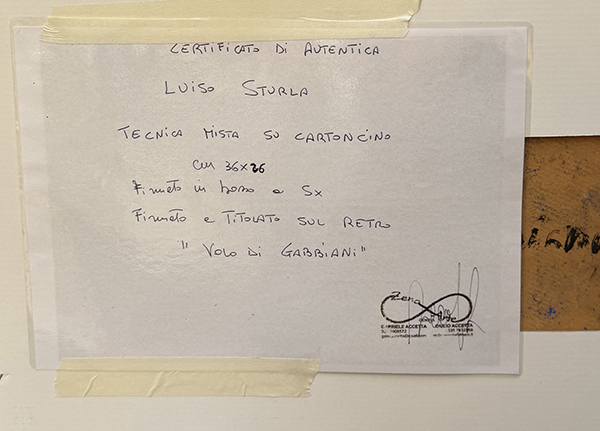 CERTIFICATO DI AUTENTICA
LUISO STURLA
TECNICA MISTA SU CARTONCINO
cm 36x26
Firmato in basso a Sx
Firmato e TITOLATO SUL RETRO
"VOLO DI GABBIANI"
Zena
GABRIELE ACCETTA GIULIO ACCETTA